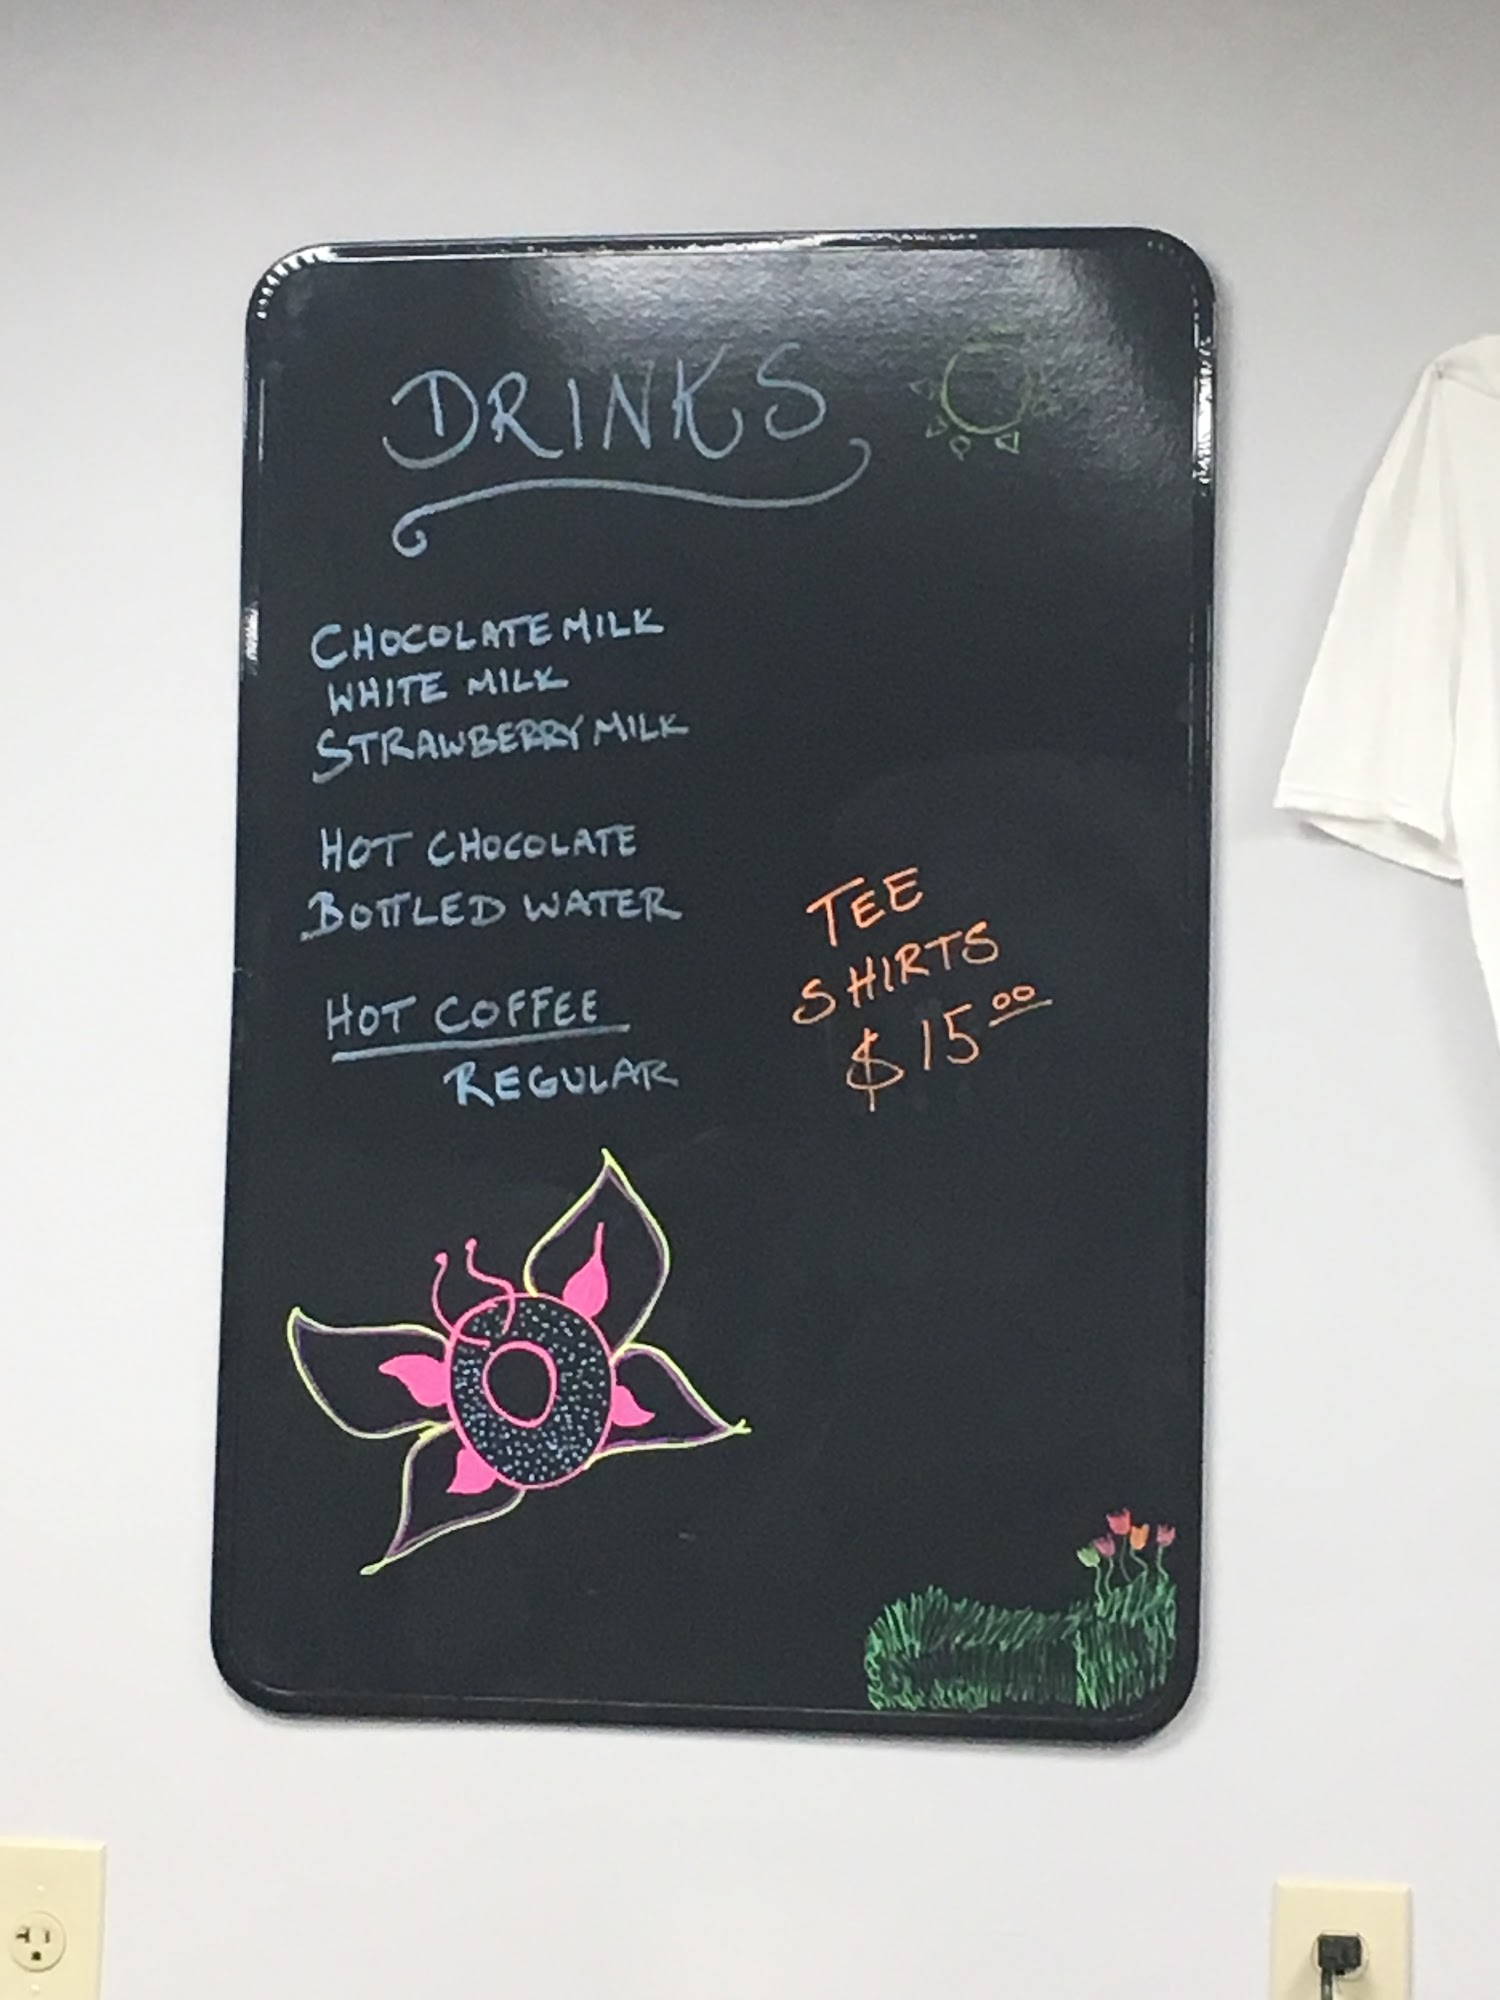 DRINKS
CHOCOLATE MILK
WHITE MILK
STRAWBERRY MILK
HOT CHOCOLATE
BOTTLED WATER
HOT COFFEE
REGULAR
TEE
SHIRTS
$15.00